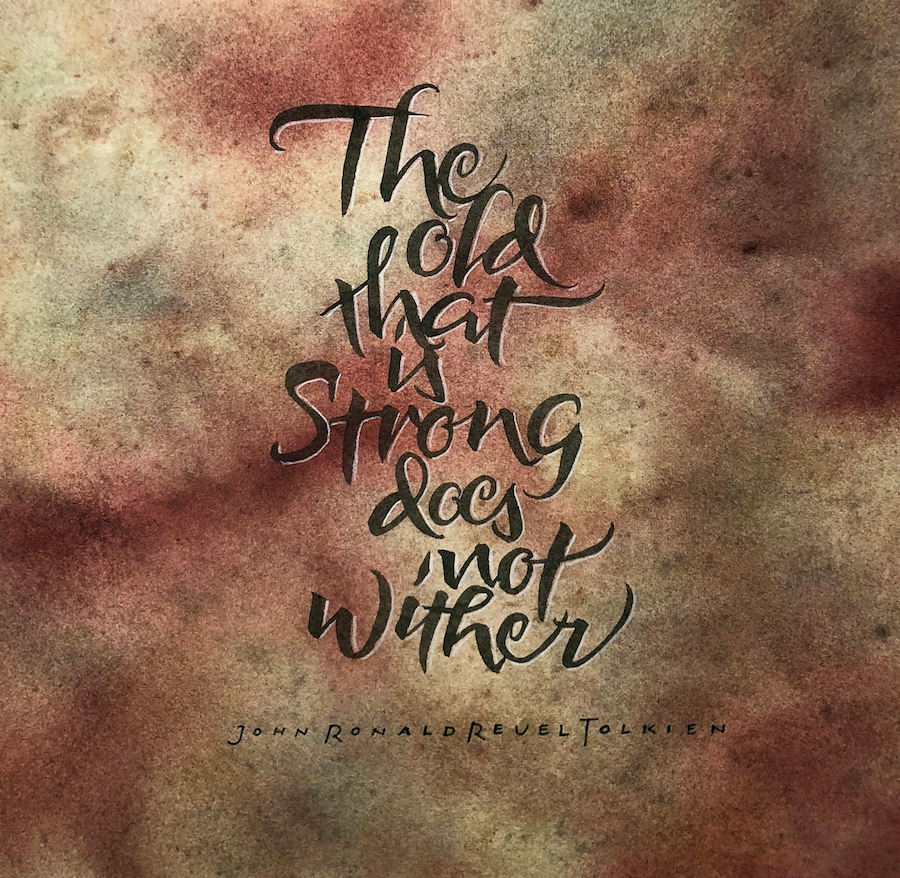 The
old
that
is
Strong
does
not
Wither
John Ronald Reuel Tolkien